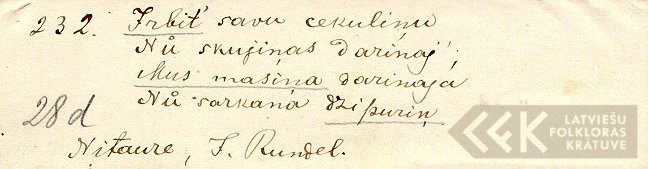 232. Irbīt' savu cekuliņu
Nů skujiņas darināj'
Mus' māsiņa darinaja
Nů sarkanā dzīpuriņ
28d
Nitaure, J. Rundel.
LATVIEŠU
FOLKLORAS
KRĀTUVE